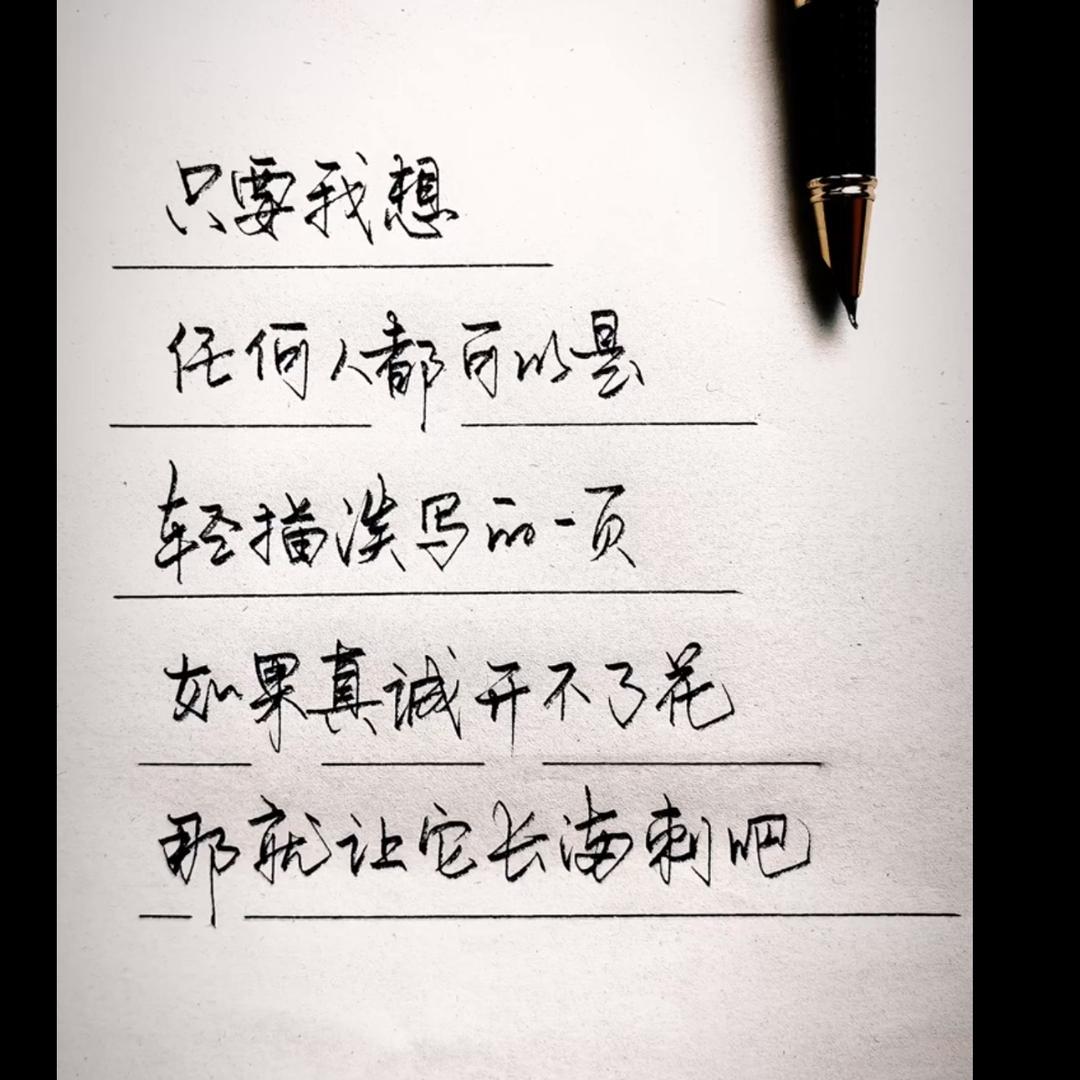 只要我想
任何人都可以是
轻描淡写的一页
如果真诚开不了花
那就让它长满刺吧